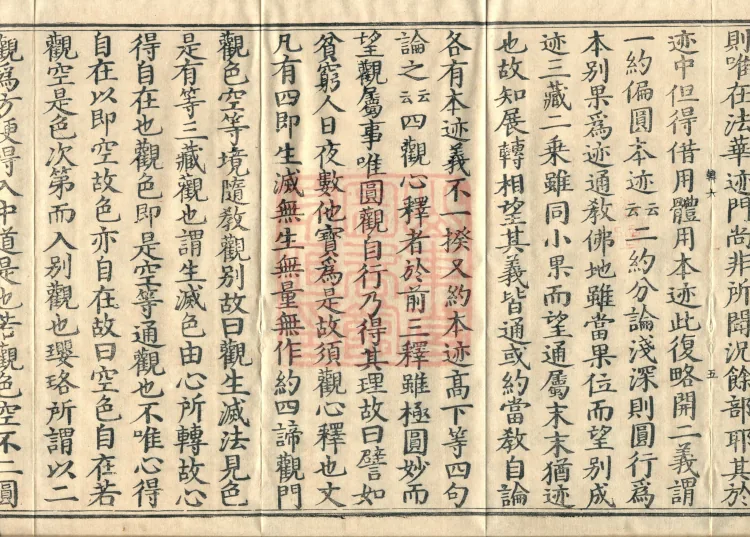 則唯在法華迹門尚非所聞況餘部耶其於
迹中但得借用體用本迹此復略開二義謂
一約偏圓本迹云云二約分論淺深則圓行爲
本別果爲迹通教佛地雖當果位而望別成
迹三藏二乘雖同小果而望通屬末末猶迹
也故知展轉相望其義皆通或約當教自論
各有本迹義不一揆又約本迹高下等四句
論之云云四觀心釋者於前三釋雖極圓妙而
望觀屬事唯圓觀自行乃得其理故曰譬如
貧窮人日夜數他寶爲是故須觀心釋也文
凡有四即生滅無生無量無作約四諦觀門
觀色空等境隨教觀別故曰觀生滅法見色
是有等三藏觀也謂生滅色由心所轉故心
得自在也觀色即是空等通觀也不唯心得
自在以即空故色亦自在故曰空色自在若
觀空是色次第而入別觀也瓔珞所謂以二
觀爲方便得入中道是也若觀色空不二圓
五